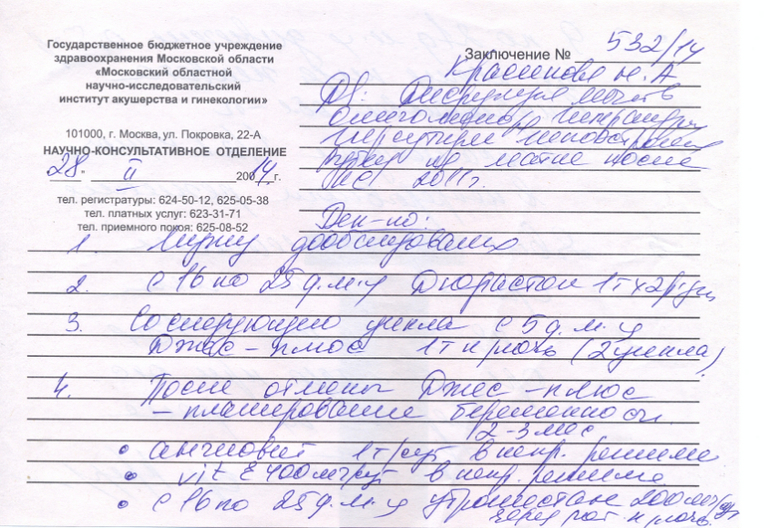 Государственное бюджетное учреждение
здравоохранения Московской области
«Московский областной
научно-исследовательский
институт акушерства и гинекологии»
101000, г. Москва, ул. Покровка, 22-А
НАУЧНО-КОНСУЛЬТАТИВНОЕ ОТДЕЛЕНИЕ
"28" II 2014 г.
тел. регистратуры: 624-50-12, 625-05-38
тел. платных услуг: 623-31-71
тел. приемного покоя: 625-08-52
Заключение № 532/14
Н.А
DS: Дисфункция яичников
на матке после
2011г.
Рек-но:
1. дообследования
2. с 16 по 25 д.м.ц Дюфастон 1т х 2р/дн
3. Со следующего цикла с 5 д.м.ц
Джес-плюс 1т н/ночь (2 цикла)
4. После отмены Джес-плюс
- планирование беременности
2-3 мес
• ангиовит 1т/сут в непр. режиме
• vit E 400 мг/сут в непр. режиме
• с 16 по 25 д.м.ц утрожестан 200 мг/
н/ночь